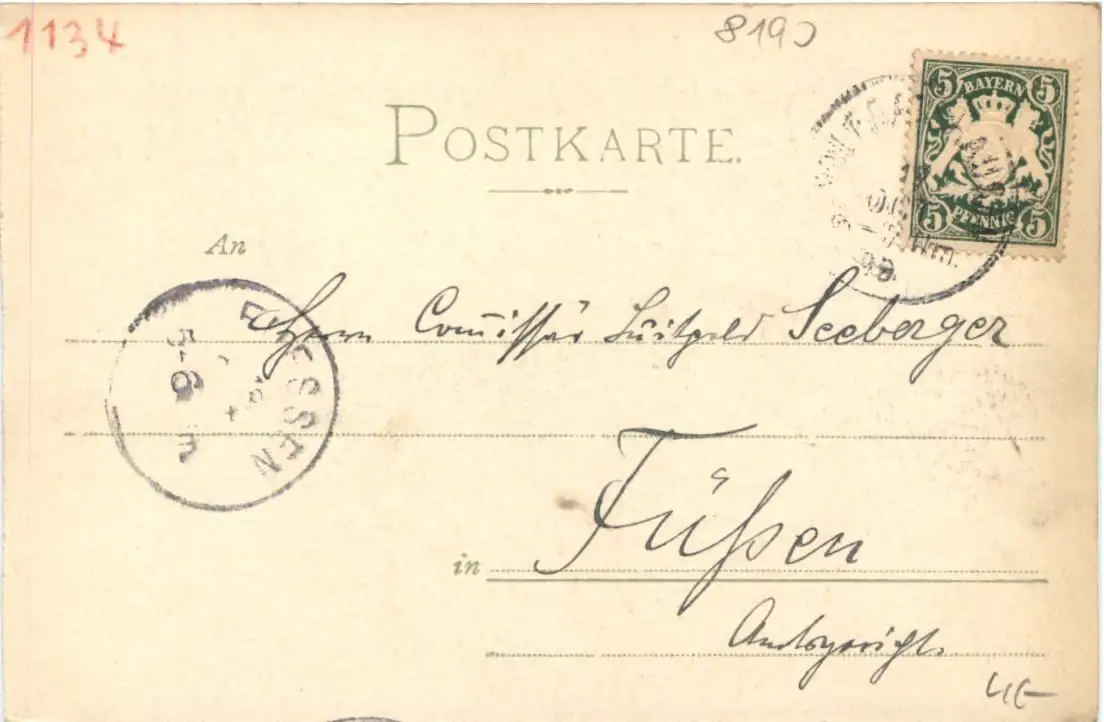 1134
8190
BAYERN
5 5
5 5
PFENNIG
POSTKARTE.
An
Herrn Comissär Luitpold Seeberger
FUESSEN
5-6
in Füßen
Amtsgericht.